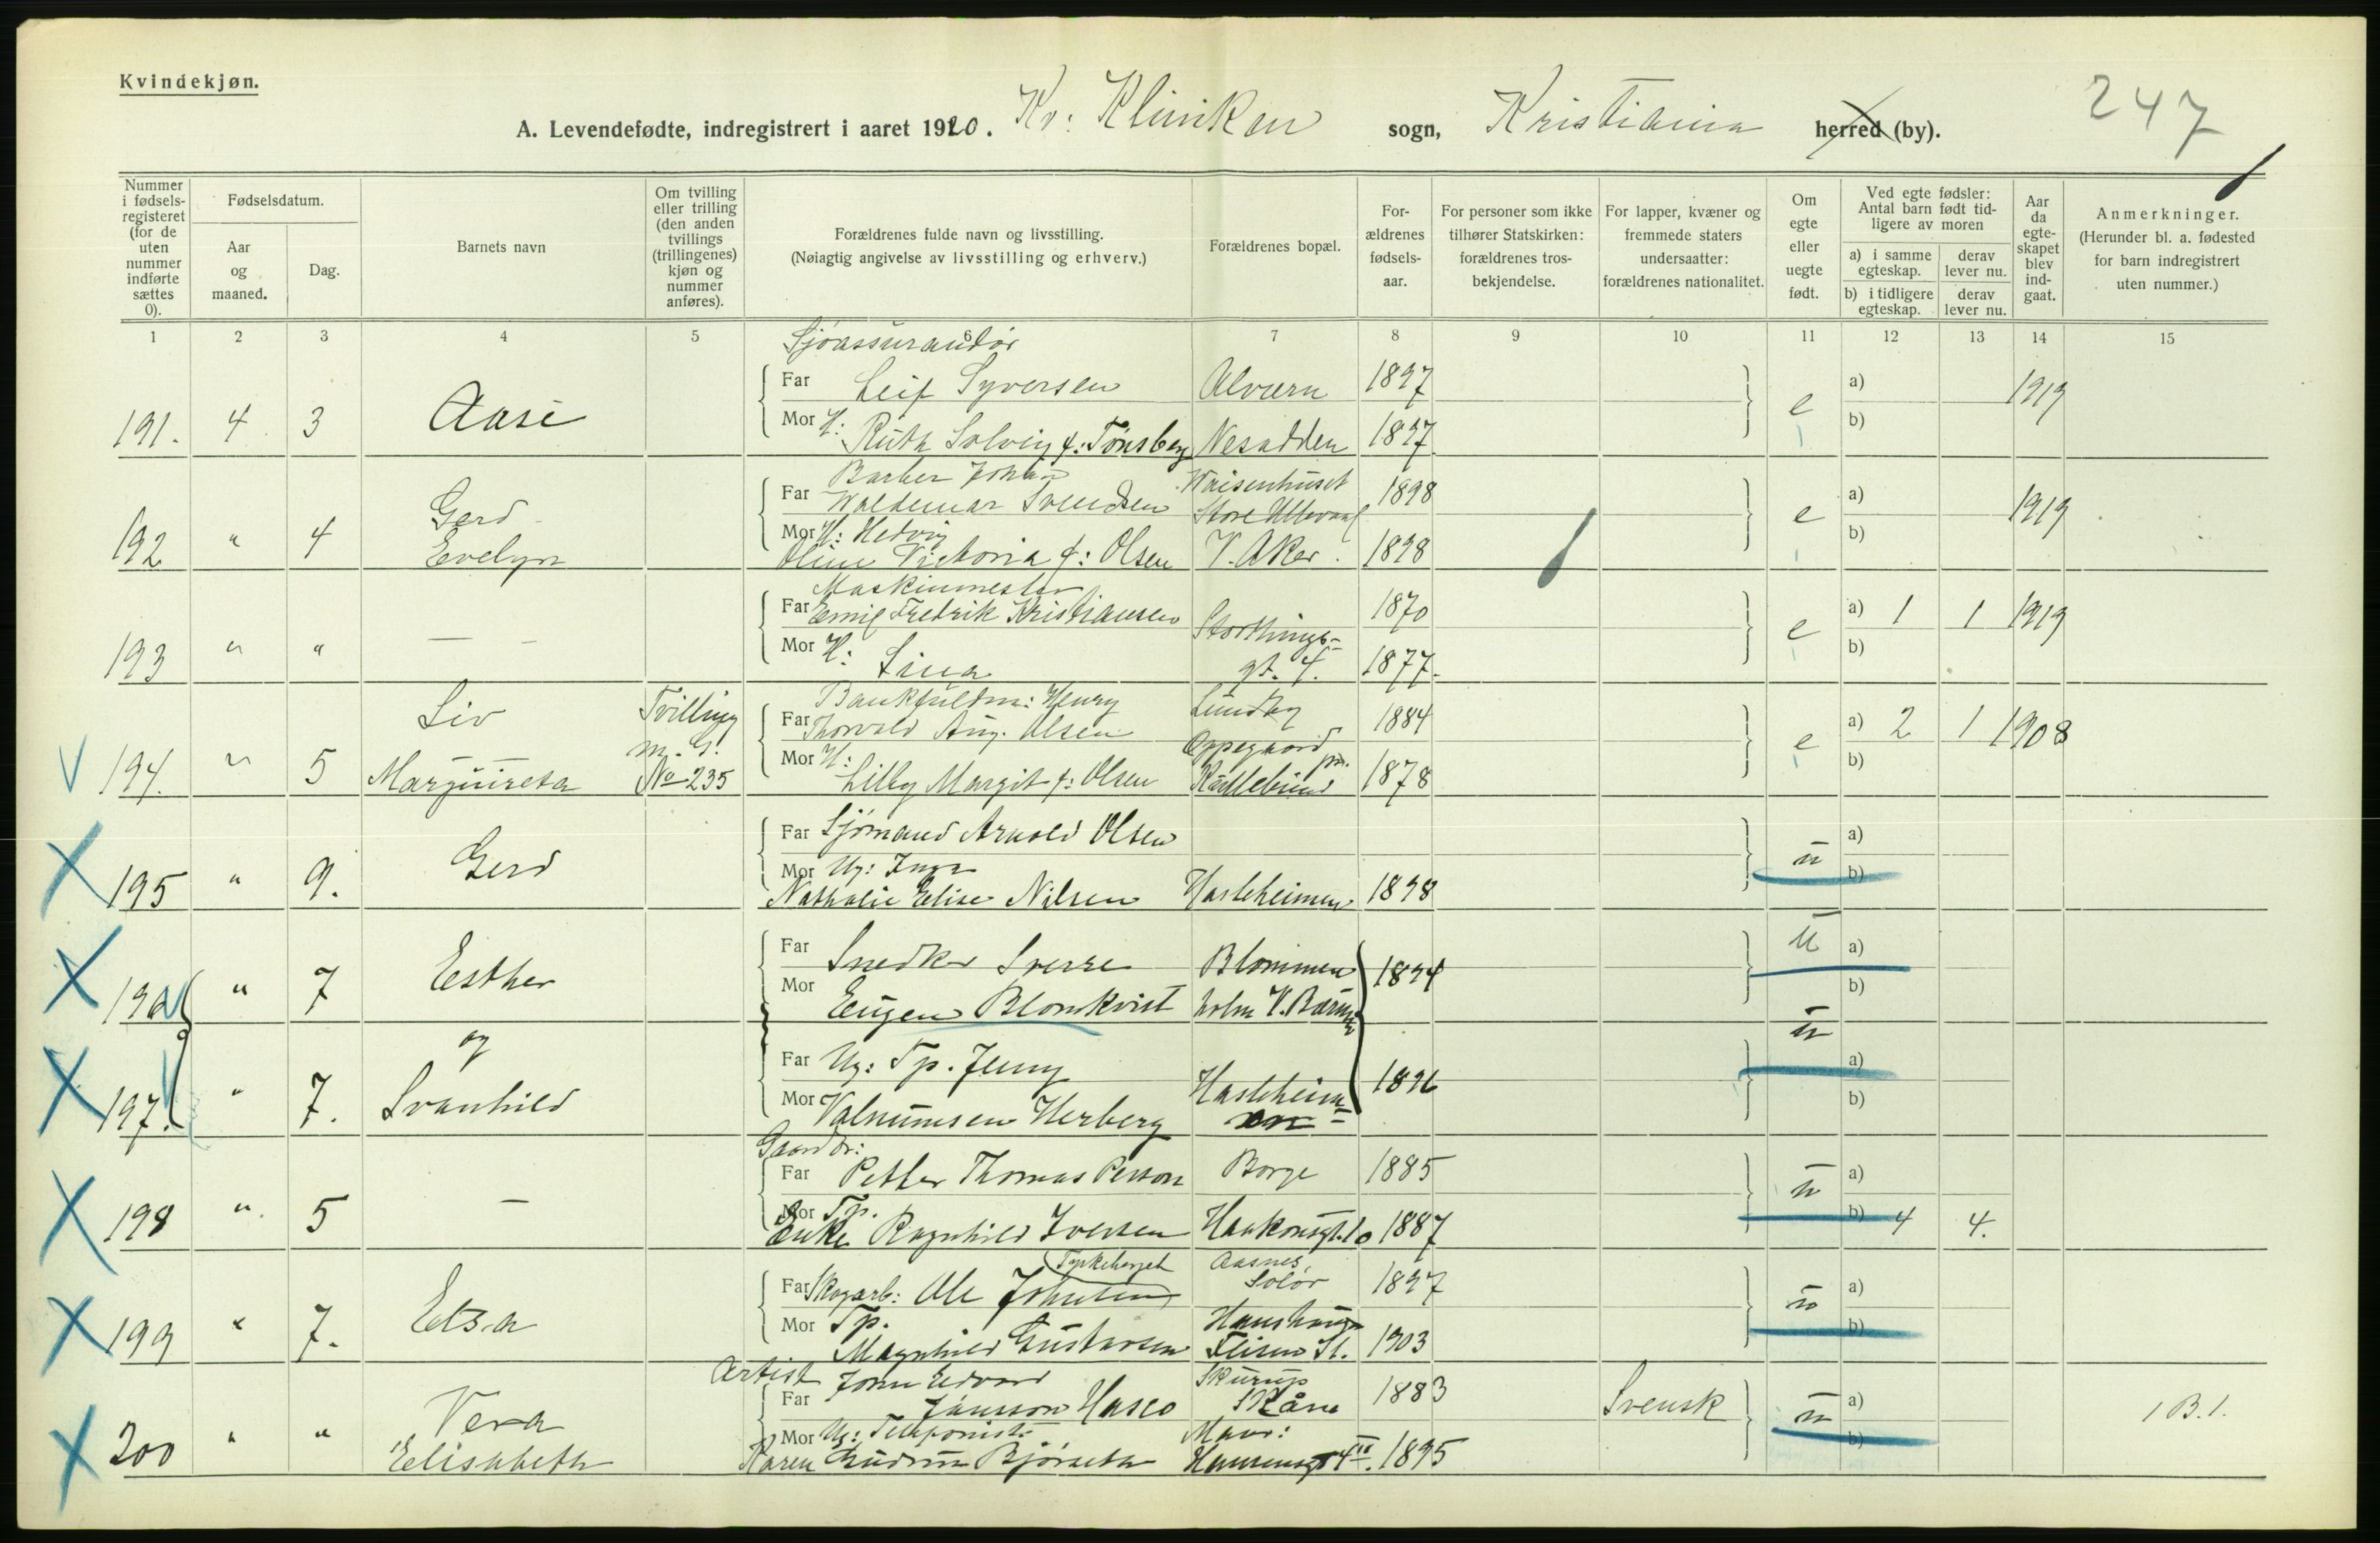 Kvindekjøn.
247
A. Levendefødte, indregistrert i aaret 1920. Kv: Kliniken sogn, Kristiania herred (by).
Nummer i fødsels-registeret (for de uten nummer indførte sættes 0).
Fødselsdatum.
Aar og maaned.
Dag.
Barnets navn
Om tvilling eller trilling (den anden tvillings (trillingenes) kjøn og nummer anføres).
Forældrenes fulde navn og livsstilling.
(Nøiagtig angivelse av livsstilling og erhverv.)
Forældrenes bopæl.
For-ældrenes fødsels-aar.
For personer som ikke tilhører Statskirken: forældrenes tros-bekjendelse.
For lapper, kvæner og fremmede staters undersaatter: forældrenes nationalitet.
Om egte eller uegte født.
Ved egte fødsler: Antal barn født tid-ligere av moren
a) i samme egteskap.
derav lever nu.
b) i tidligere egteskap.
derav lever nu.
Aar da egte-skapet blev ind-gaat.
Anmerkninger.
(Herunder bl. a. fødested for barn indregistrert uten nummer.)
1 2 3 4 5 6 7 8 9 10 11 12 13 14 15
Sjøassurandør
Far Leif Syversen Alværn 1897 a) 1919
191. 4 3 Aase e
Mor H: Ruth Solveig f: Tønsberg Nesodden 1897 b)
Barber Johan Waisenhuset
Far Waldemar Svendsen Store Ullevaal 1898 a) 1919
192 " 4 Gerd Evelyn e
Mor H: Hedvig
Oline Victoria f: Olsen V. Aker. 1898 b)
Maskinmester
Far Emil Fredrik Kristiansen Stortings- 1870 a) 1 1 1919
193 " " — — e
Mor H: Lina gt. 4. 1877. b)
Liv Tvilling Bankfuldm: Henry Lundby
Far Thorvald Aug. Olsen 1884 a) 2 1 1908
m. G. Oppegaard
194. " 5 Margureta No 235 e
Mor H: Lilly Margit f: Olsen pr. Kullebund 1878 b)
Far Sjømand Arnold Olsen a)
195 " 9. Gerd u
Mor Ug: Inga
Nathalie Elise Nilsen Hasleheimen 1898 b)
Far Snedker Sverre Blommen 1894 u a)
196 " 7 Esther
Mor Eugen Blomkvist holm V. Bærum b)
og u
Far Ug: Tp. Jenny a)
197. " 7. Svanhild Hasleheim 1896
Mor Valnumsen Herberg en b)
Gaardbr:
Far Petter Thomas Person Borge 1885 a)
198 " 5 — u
Mor Tp.
Enke Ragnhild Iversen Haakonsgt. 10 1887 b) 4 4.
Tyskeberget Aasnes,
Far Skogarb: Ole Johnsen Solør 1897 a)
199 " 7. Elsa u
Mor Tp. Haushaug
Magnhild Gustavsen Flisen St. 1903 b)
Artist John Edvard Skurup
Far Jönsson Hasco Skåne 1883 Svensk a)
200 " " Vera Elisabeth u 1 B. 1.
Mor Ug: Telefonist Maur:
Karen Gudrun Bjørseth Hansensgt 4 III. 1895 b)